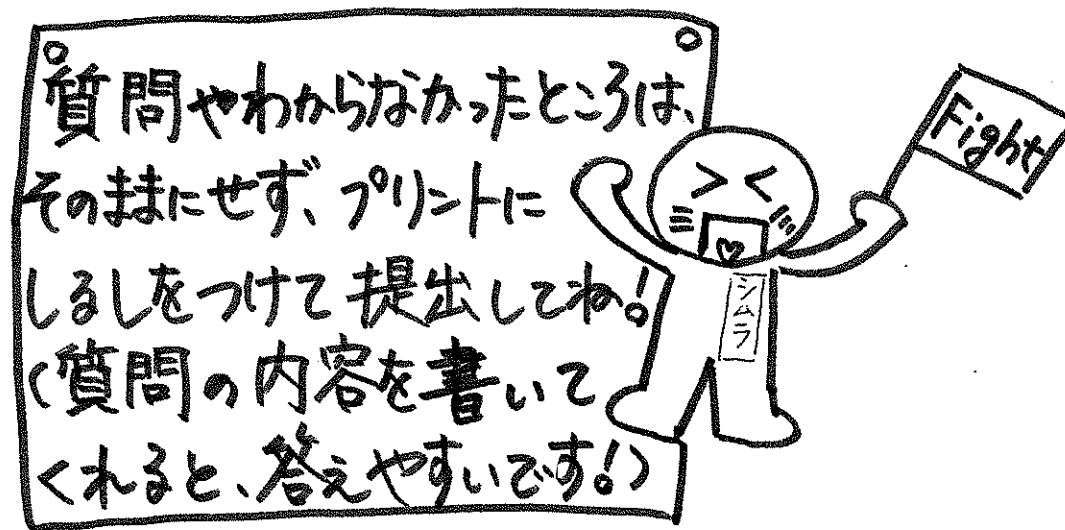 質問やわからなかったところは、
そのままにせず、プリントに
しるしをつけて提出してね!
(質問の内容を書いて
くれると、答えやすいです!)
Fight
シムラ